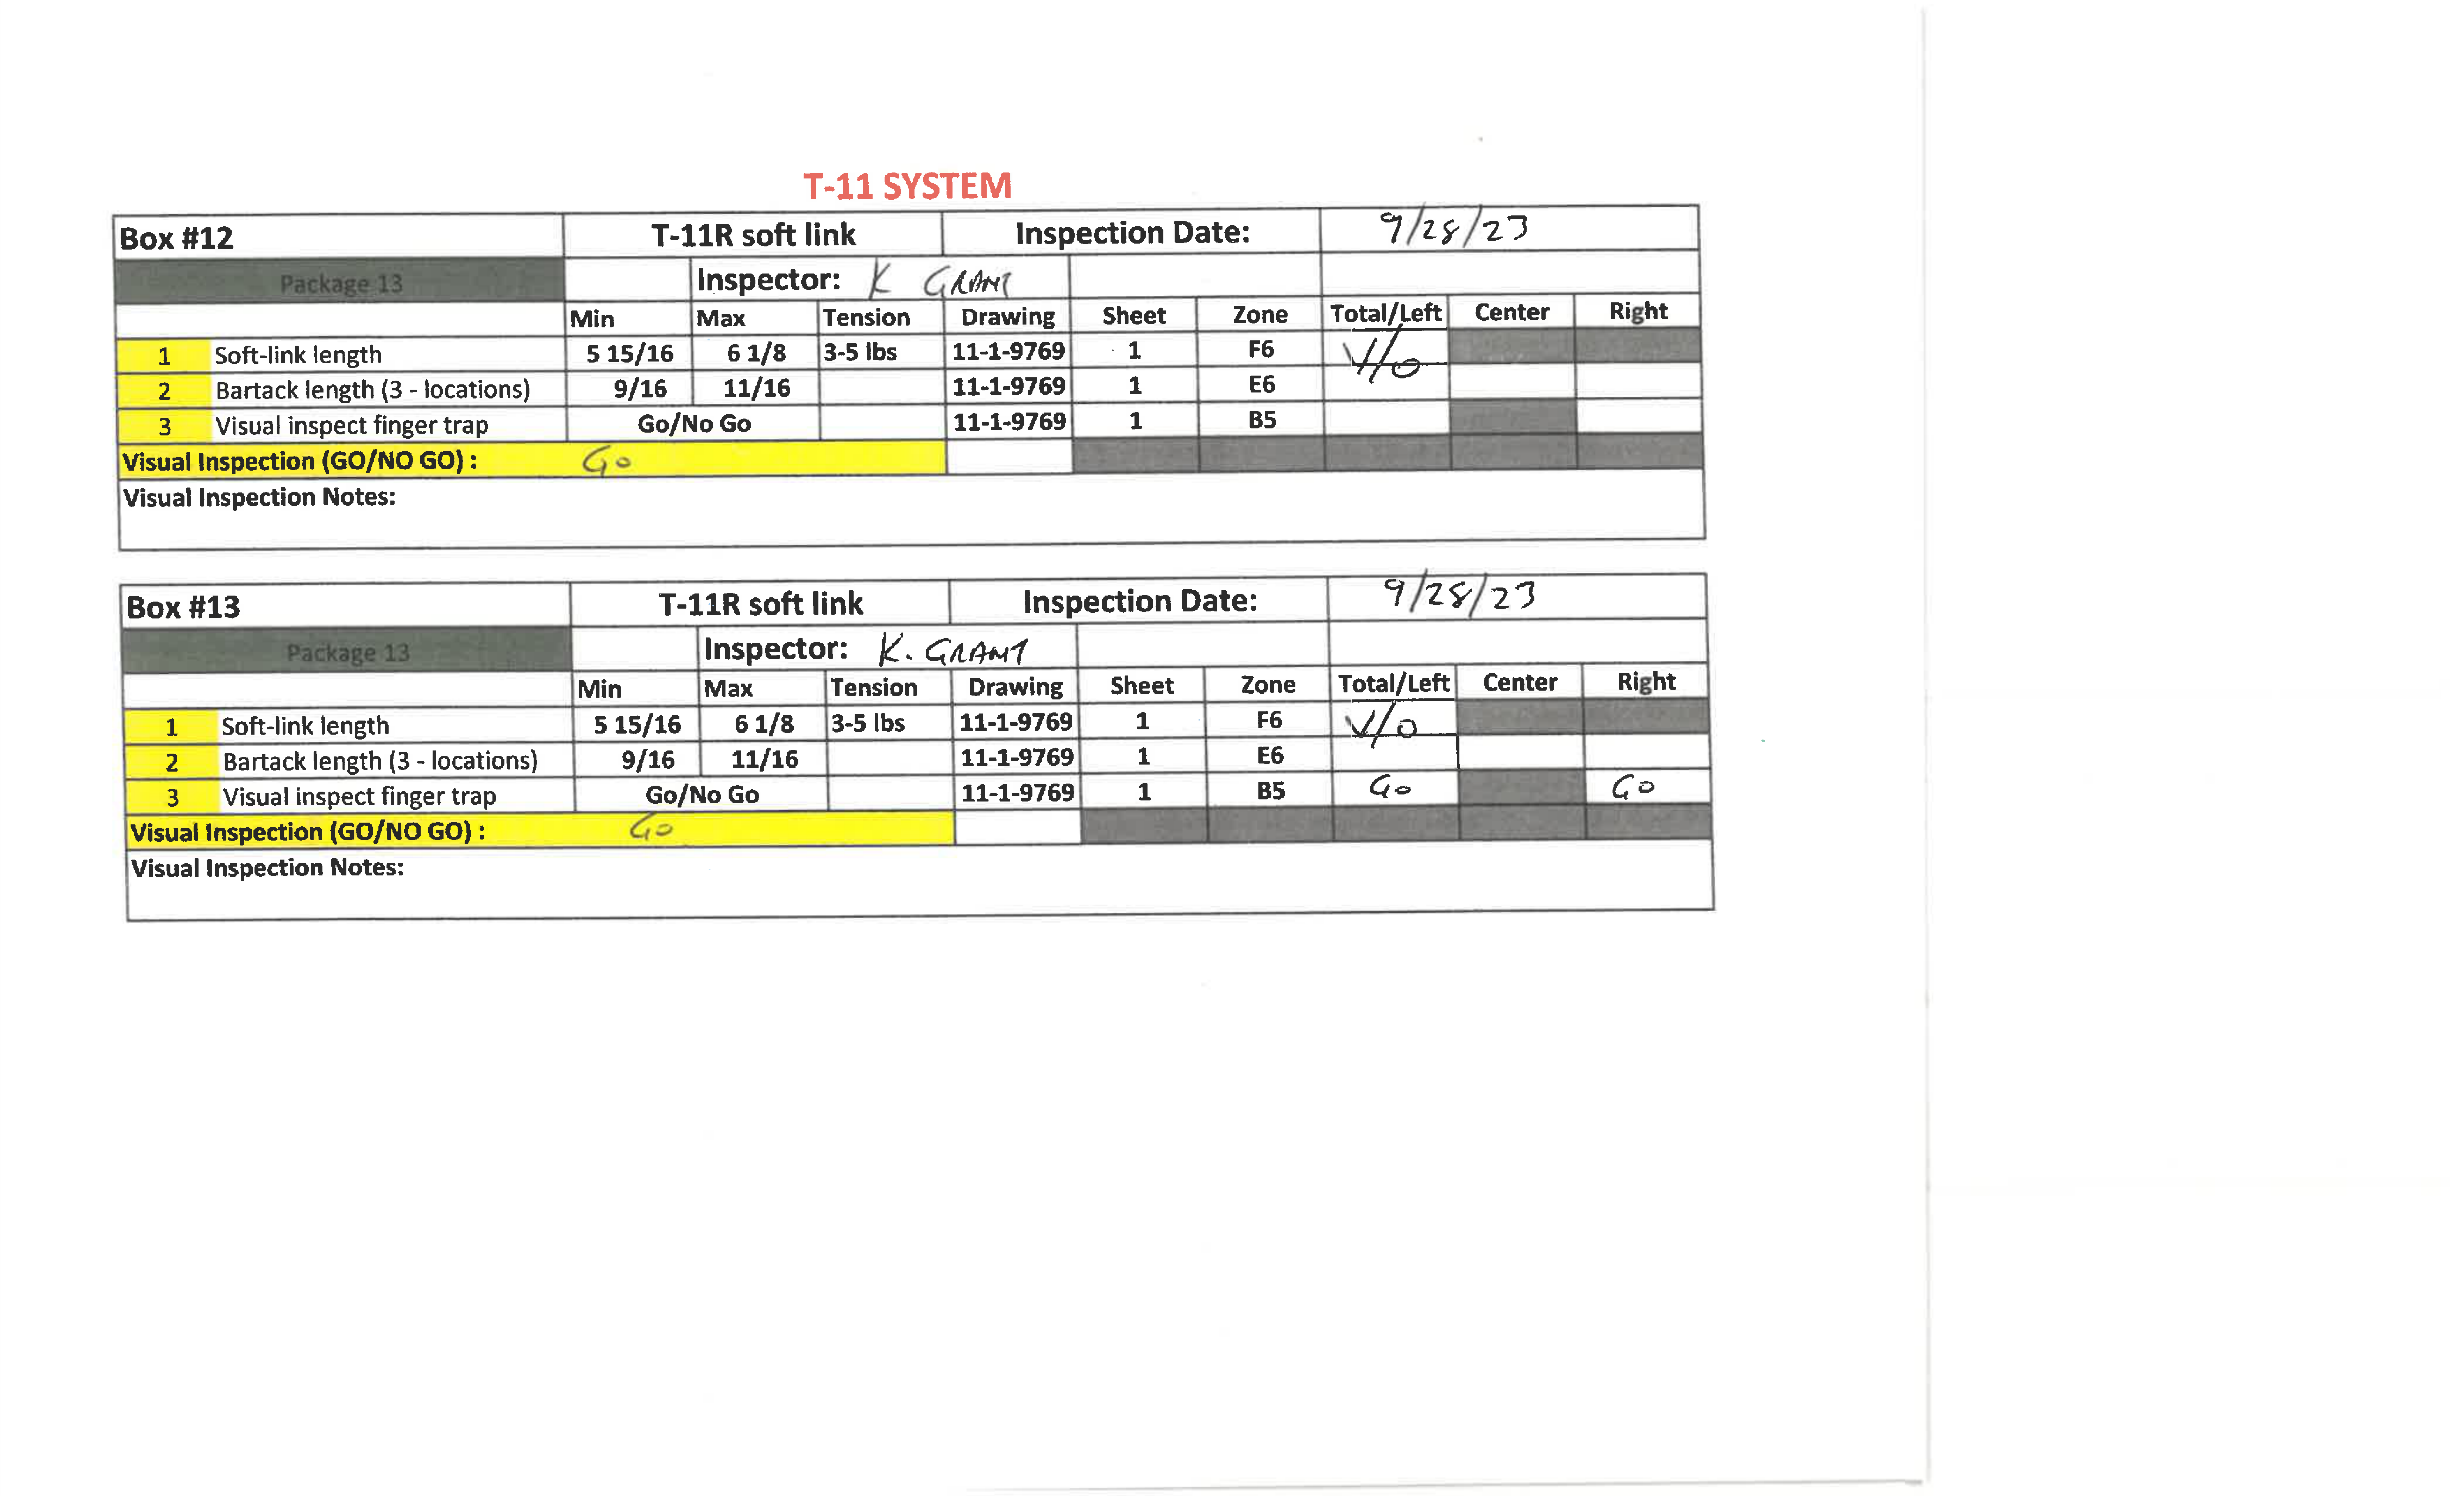 T-11 SYSTEM
Box #12 T-11R soft link Inspection Date: 9/28/23
Package 13 Inspector: K GRANT
Min Max Tension Drawing Sheet Zone Total/Left Center Right
1 Soft-link length 5 15/16 6 1/8 3-5 lbs 11-1-9769 1 F6 V/O
2 Bartack length (3 - locations) 9/16 11/16 11-1-9769 1 E6
3 Visual inspect finger trap Go/No Go 11-1-9769 1 B5
Visual Inspection (GO/NO GO) : Go
Visual Inspection Notes:
Box #13 T-11R soft link Inspection Date: 9/28/23
Package 13 Inspector: K. GRANT
Min Max Tension Drawing Sheet Zone Total/Left Center Right
1 Soft-link length 5 15/16 6 1/8 3-5 lbs 11-1-9769 1 F6 V/O
2 Bartack length (3 - locations) 9/16 11/16 11-1-9769 1 E6
3 Visual inspect finger trap Go/No Go 11-1-9769 1 B5 Go Go
Visual Inspection (GO/NO GO) : Go
Visual Inspection Notes: